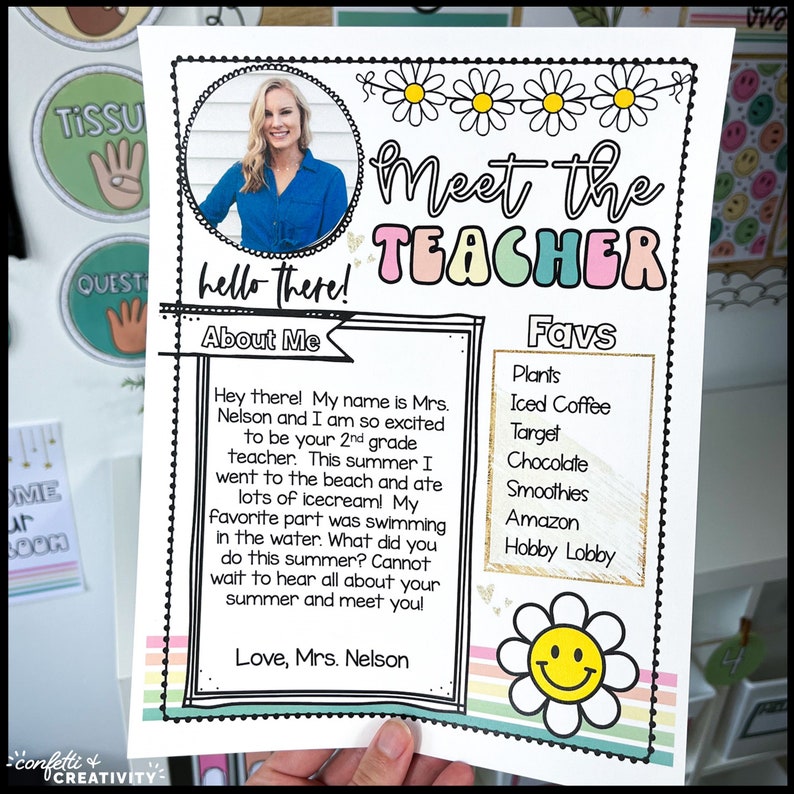 TISSU
QUESTI
Meet the
TEACHER
hello there!
About Me
Hey there!  My name is Mrs.
Nelson and I am so excited
to be your 2nd grade
teacher.  This summer I
went to the beach and ate
lots of icecream!  My
favorite part was swimming
in the water. What did you
do this summer? Cannot
wait to hear all about your
summer and meet you!
Love, Mrs. Nelson
Favs
Plants
Iced Coffee
Target
Chocolate
Smoothies
Amazon
Hobby Lobby
OME
ur
ROOM
4
confetti &
CREATIVITY